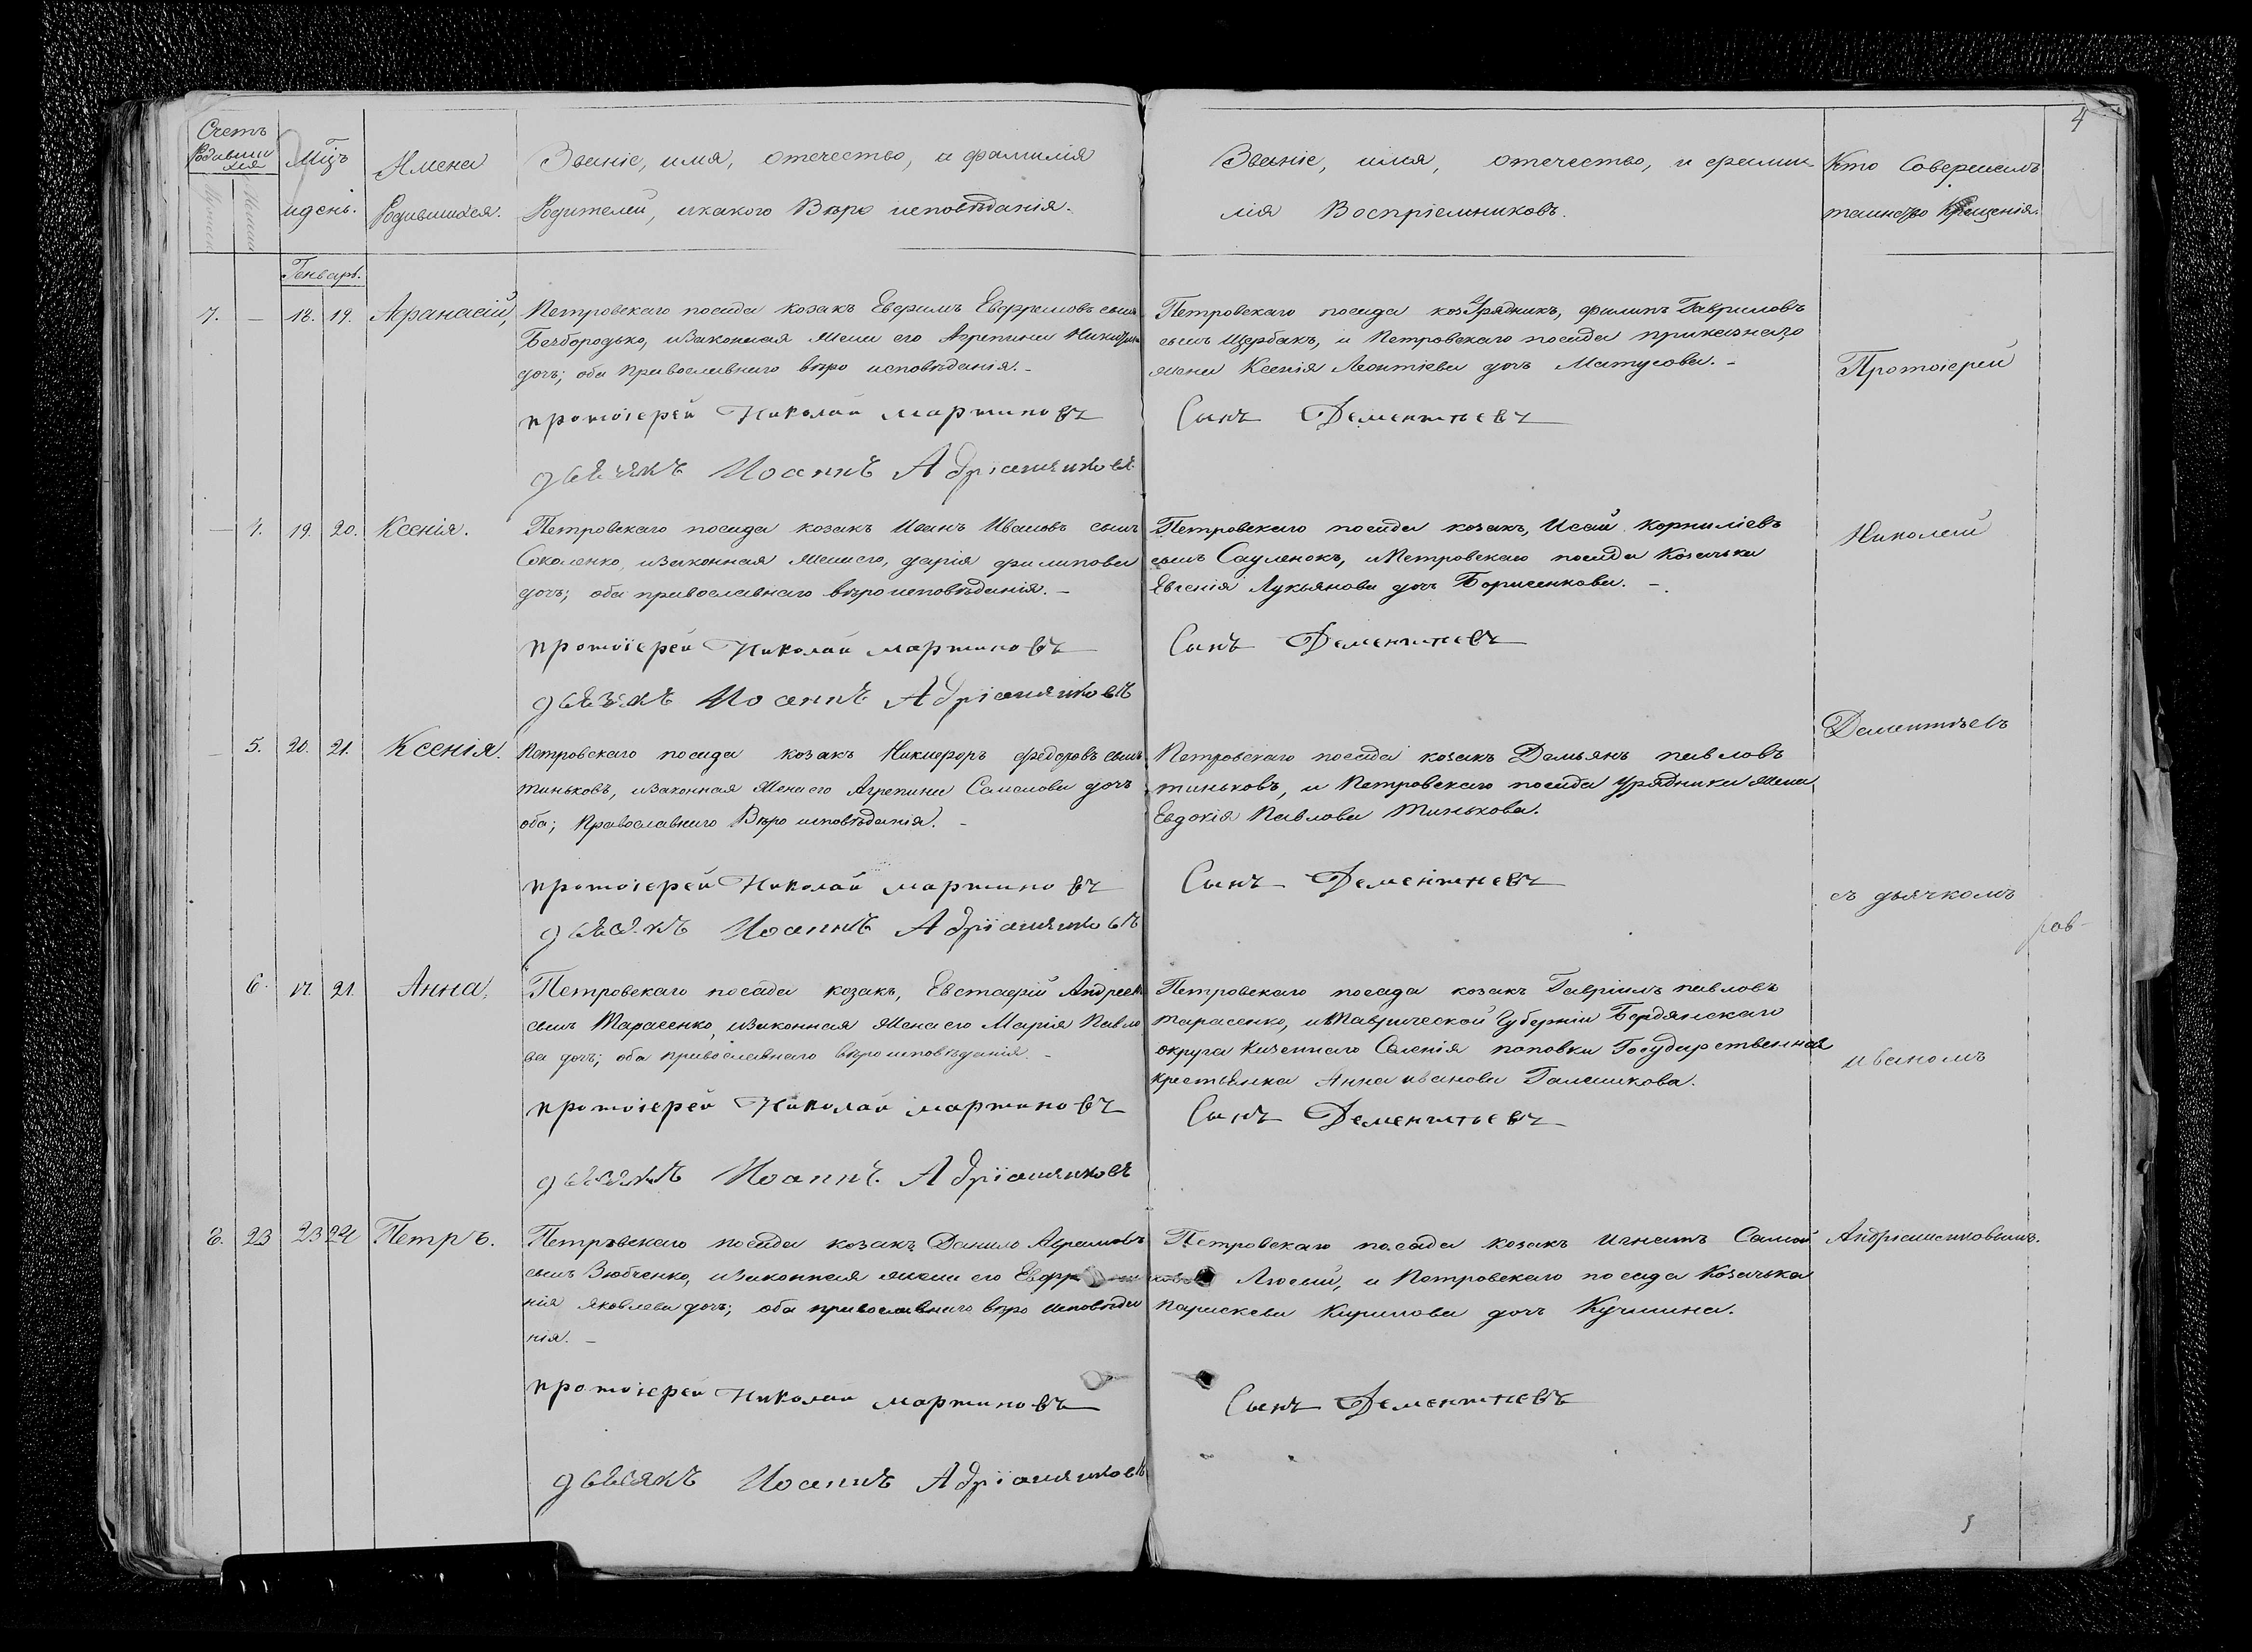 4
Счетъ
Родивши
хся
Мцъ
и день.
Имена
Родившихся.
Званіе, имя, отечество, и фамилія
Родителей, и какого Вѣро исповѣданія.
Званіе, имя, отечество, и фами
лія Воспріемниковъ.
Кто Совершалъ
таинство Крещенія.
Генварь.
7. — 18. 19. Афанасій,
Петровскаго посада козакъ Евфимъ сынъ
Безбородько, и законная жена его Агрепина
дочь; оба православнаго вѣро исповѣданія. –
Петровскаго посада Урядникъ, филипъ Гавриловъ
сынъ Щербакъ, и Петровскаго посада приказнаго
жена Ксенія Леонтіева дочь Матусова. –
протоіерей Николай мартиновъ
Сынъ Дементтевъ
Іоаннъ Адріашянковъ
— 4. 19. 20. Ксенія.
Петровскаго посада козакъ Иванъ Ивановъ сынъ
Соколенко, и законная жена его, дарія филипова
дочь; оба православнаго вѣро исповѣданія. –
Петровскаго посада козакъ, Исай Корниліевъ
сынъ Сауленокъ, и Петровскаго посада Козачька
Евгенія Лукьянова дочь Борисенкова. –
протоіерей Николай мартиновъ
Сынъ Дементтевъ
Іоаннъ Адріашянковъ
— 5. 20. 21. Ксенія.
Петровскаго посада козакъ Никифоръ федоровъ сынъ
тиньковъ, и законная жена его Агрепина Самойлова дочь
оба; Православнаго Вѣро исповѣданія. –
Петровскаго посада козакъ Демьянъ павловъ
тиньковъ, и Петровскаго посада урядника жена
Евдокія Павлова Тинькова.
протоіерей Николай мартиновъ
Сынъ Дементтевъ
Іоаннъ Адріашянковъ
6. 17. 21. Анна,
Петровскаго посада козакъ, Евстафій Андреевъ
сынъ Тарасенко, и законная жена его Марія Павло
ва дочь; оба православнаго вѣро исповѣданія. –
Петровскаго посада козакъ Гавріилъ павловъ
тарасенко, и Таврической Губерніи Бердянскаго
округа Казеннаго Селенія поповки Государственная
крестьянка Анна иванова Галашкова.
протоіерей Николай мартиновъ
Сынъ Дементтьевъ
Іоаннъ Адріашянковъ
8. 23 23 24 Петръ.
Петровскаго посада козакъ Данило
сынъ Зюбченко, и законная жена его
нія Яковлева дочь; оба православнаго вѣро исповѣда
нія. –
Петровскаго посада козакъ игнатъ
Лютый, и Петровскаго посада Козачька
Параскева Кирилова дочь Кучмина.
протоіерей Николай мартиновъ
Сынъ Дементтевъ
Іоаннъ Адріашянковъ
Протоіерей
Николай
Дементьевъ
съ дьячкомъ
иваномъ
Андріашенковымъ.